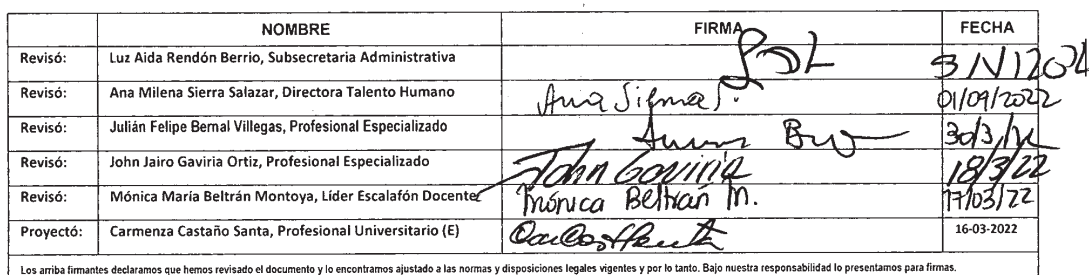 NOMBRE FIRMA FECHA
Revisó: Luz Aida Rendón Berrio, Subsecretaria Administrativa
Revisó: Ana Milena Sierra Salazar, Directora Talento Humano Ana Sierra S. 01/09/2022
Revisó: Julián Felipe Bernal Villegas, Profesional Especializado
Revisó: John Jairo Gaviria Ortiz, Profesional Especializado John Gaviria 18/3/22
Revisó: Mónica María Beltrán Montoya, Líder Escalafón Docente Mónica Beltrán M. 17/03/22
Proyectó: Carmenza Castaño Santa, Profesional Universitario (E) 16-03-2022
Los arriba firmantes declaramos que hemos revisado el documento y lo encontramos ajustado a las normas y disposiciones legales vigentes y por lo tanto. Bajo nuestra responsabilidad lo presentamos para firmas.